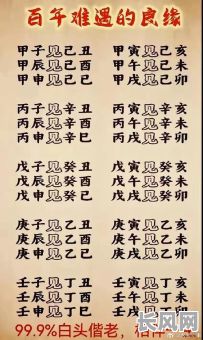 百年难遇的良缘
甲子见己丑 甲寅见己亥
甲辰见己酉 甲午见己未
甲申见己巳 甲戌见己卯
丙子见辛丑 丙寅见辛亥
丙辰见辛酉 丙午见辛未
丙申见辛巳 丙戌见辛卯
戊子见癸丑 戊寅见癸亥
戊辰见癸酉 戊午见癸未
戊申见癸巳 戊戌见癸卯
庚子见乙丑 庚寅见乙亥
庚辰见乙酉 庚午见乙未
庚申见乙巳 庚戌见乙卯
壬子见丁丑 壬寅见丁亥
壬辰见丁酉 壬午见丁未
壬申见丁巳 壬戌见丁卯
99.9%白头偕老，相伴
长风网